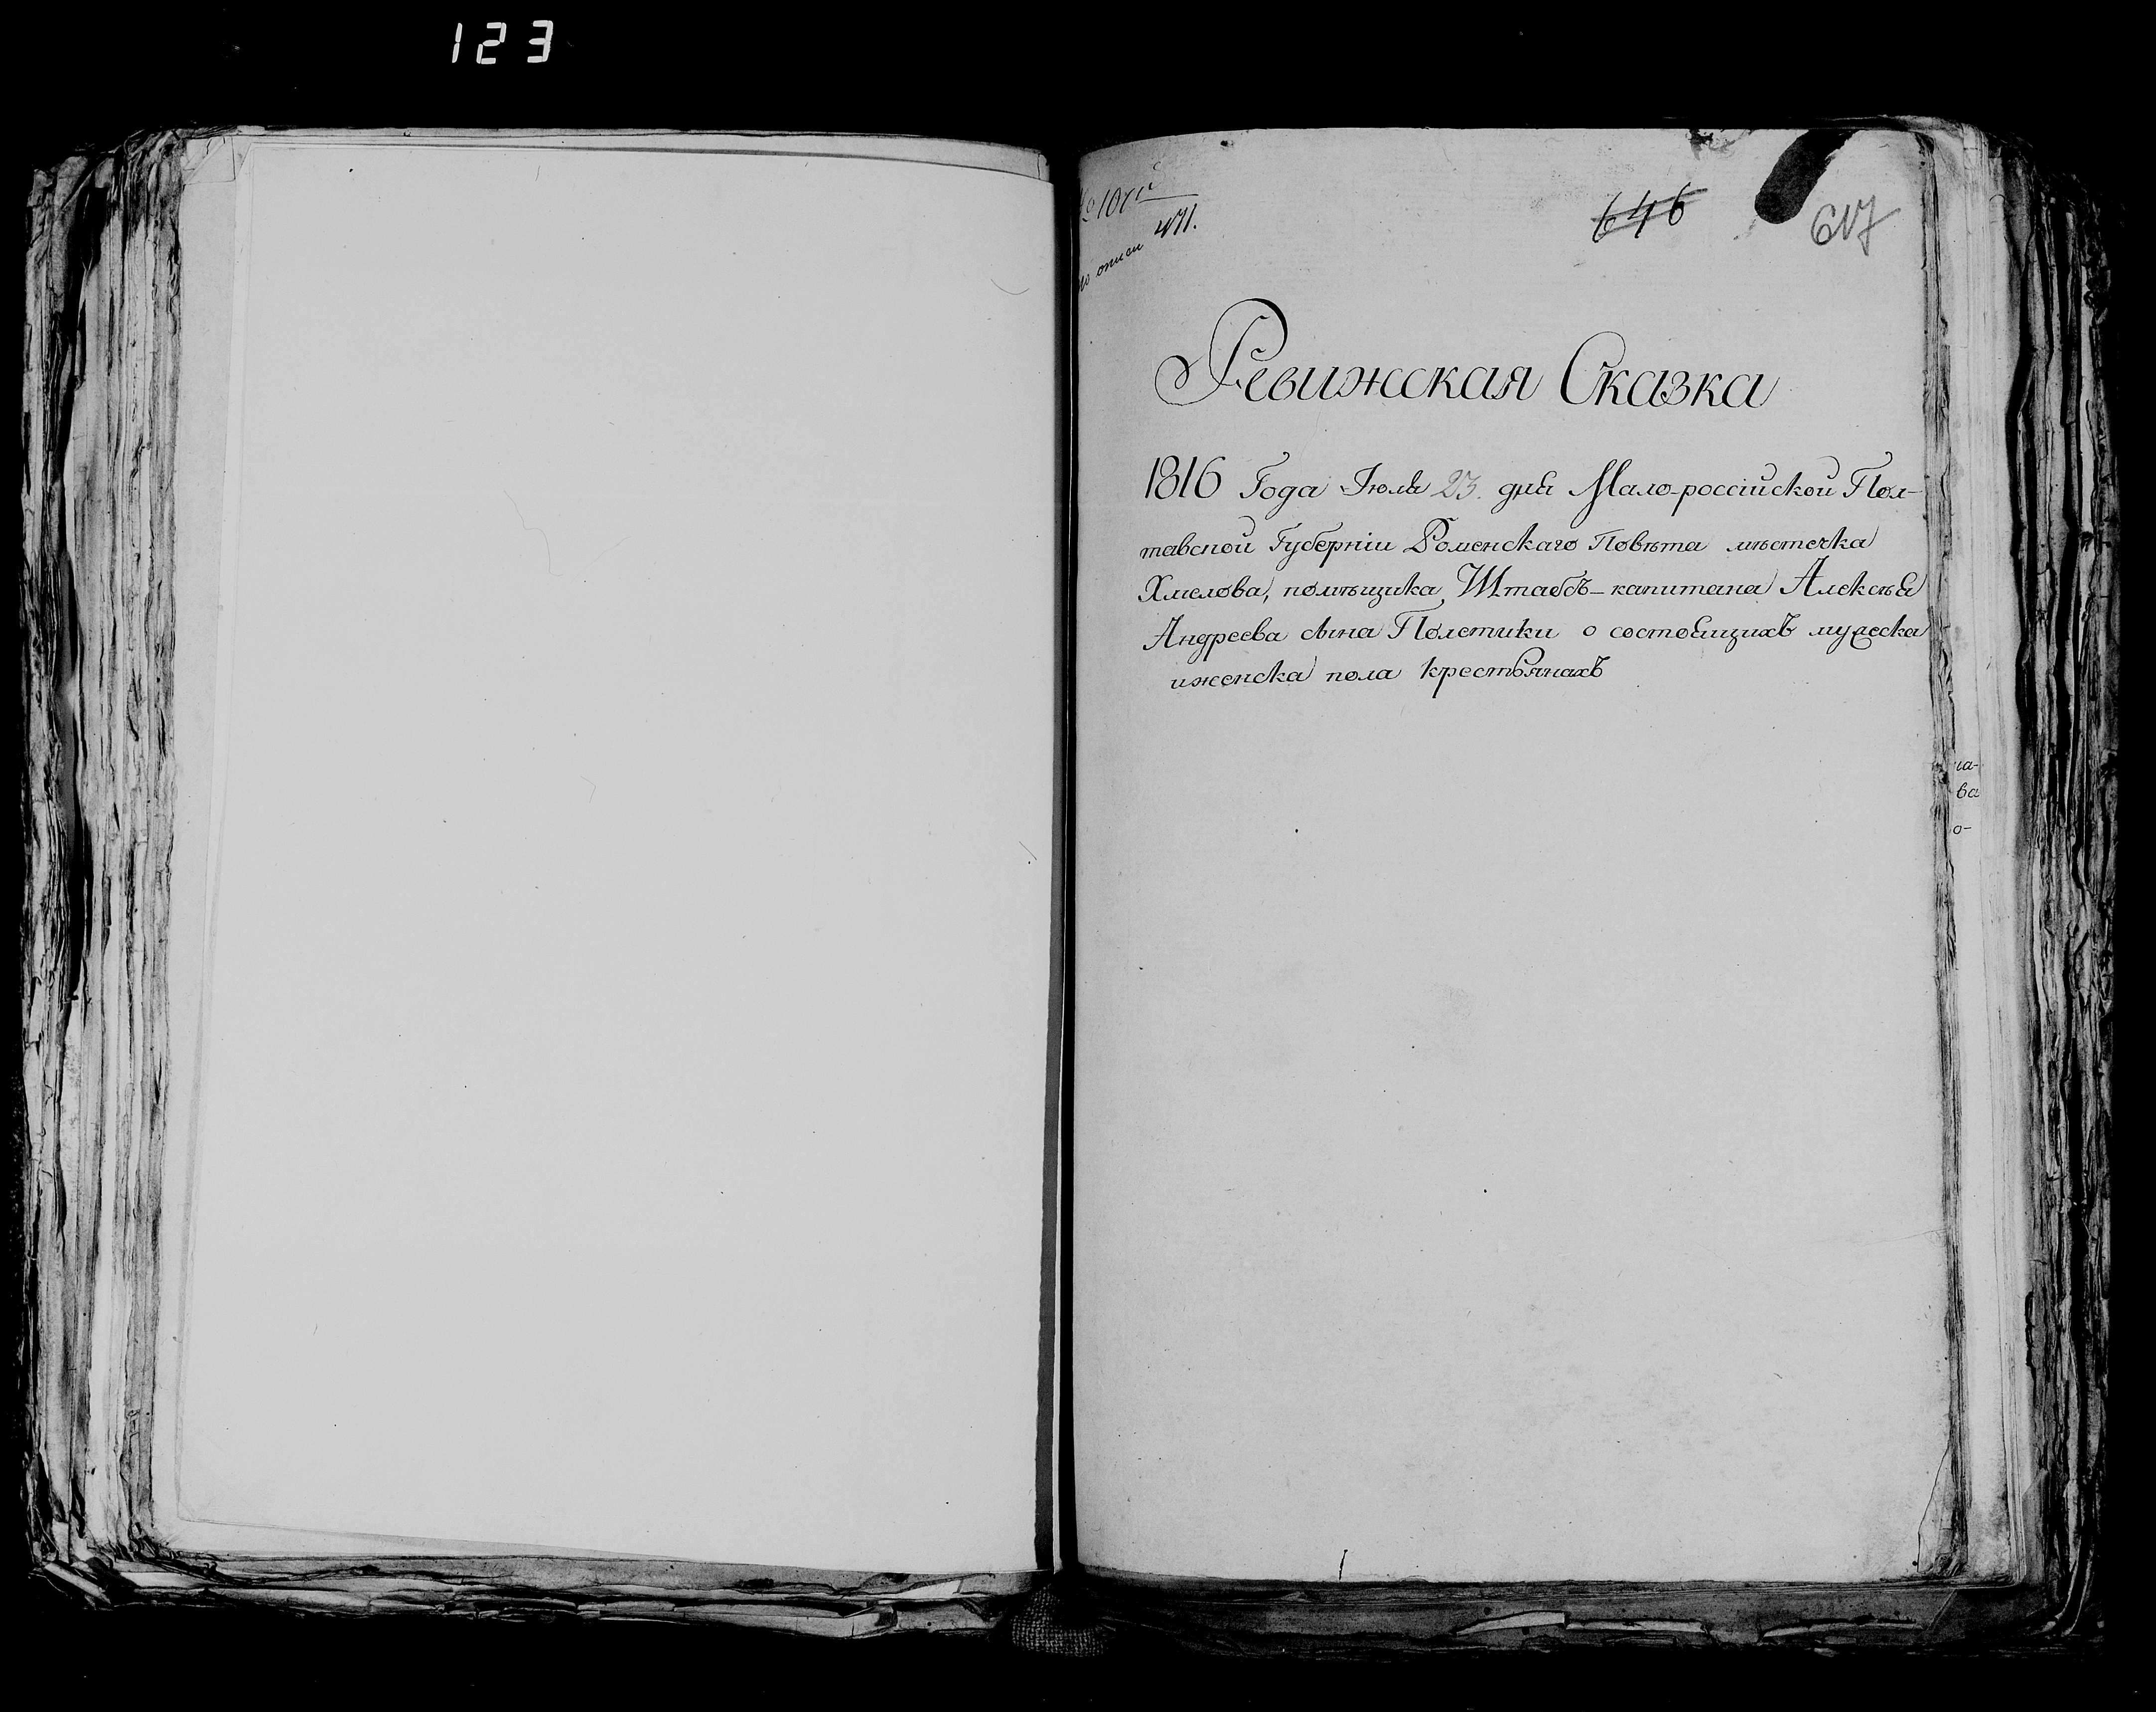 123
по описи 471.
646
617
Ревижская Сказка
1816 Года Іюля 23. дня Мало-россійской Пол-
тавской Губерніи Роменскаго Повѣта мѣстечка
Хмелова, помѣщика, Штабсъ-капитана Алексѣя
Андреева сына Полетики о состоящихъ мужеска
иженска пола крестьянахъ
ва
о-